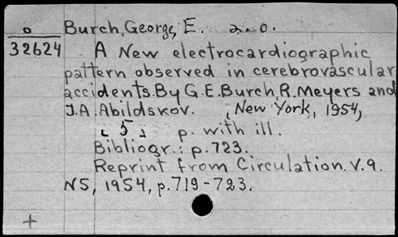 o Burch, George, E. a.o.
32624 A New electrocardiographic
pattern observed in cerebrovascular
accidents. By G.E. Burch, R. Meyers and
J.A. Abildskov. New York, 1954,
[5] p. with ill.
Bibliogr.: p. 723.
Reprint from Circulation. V. 9.
N5, 1954, p. 719-723.
+